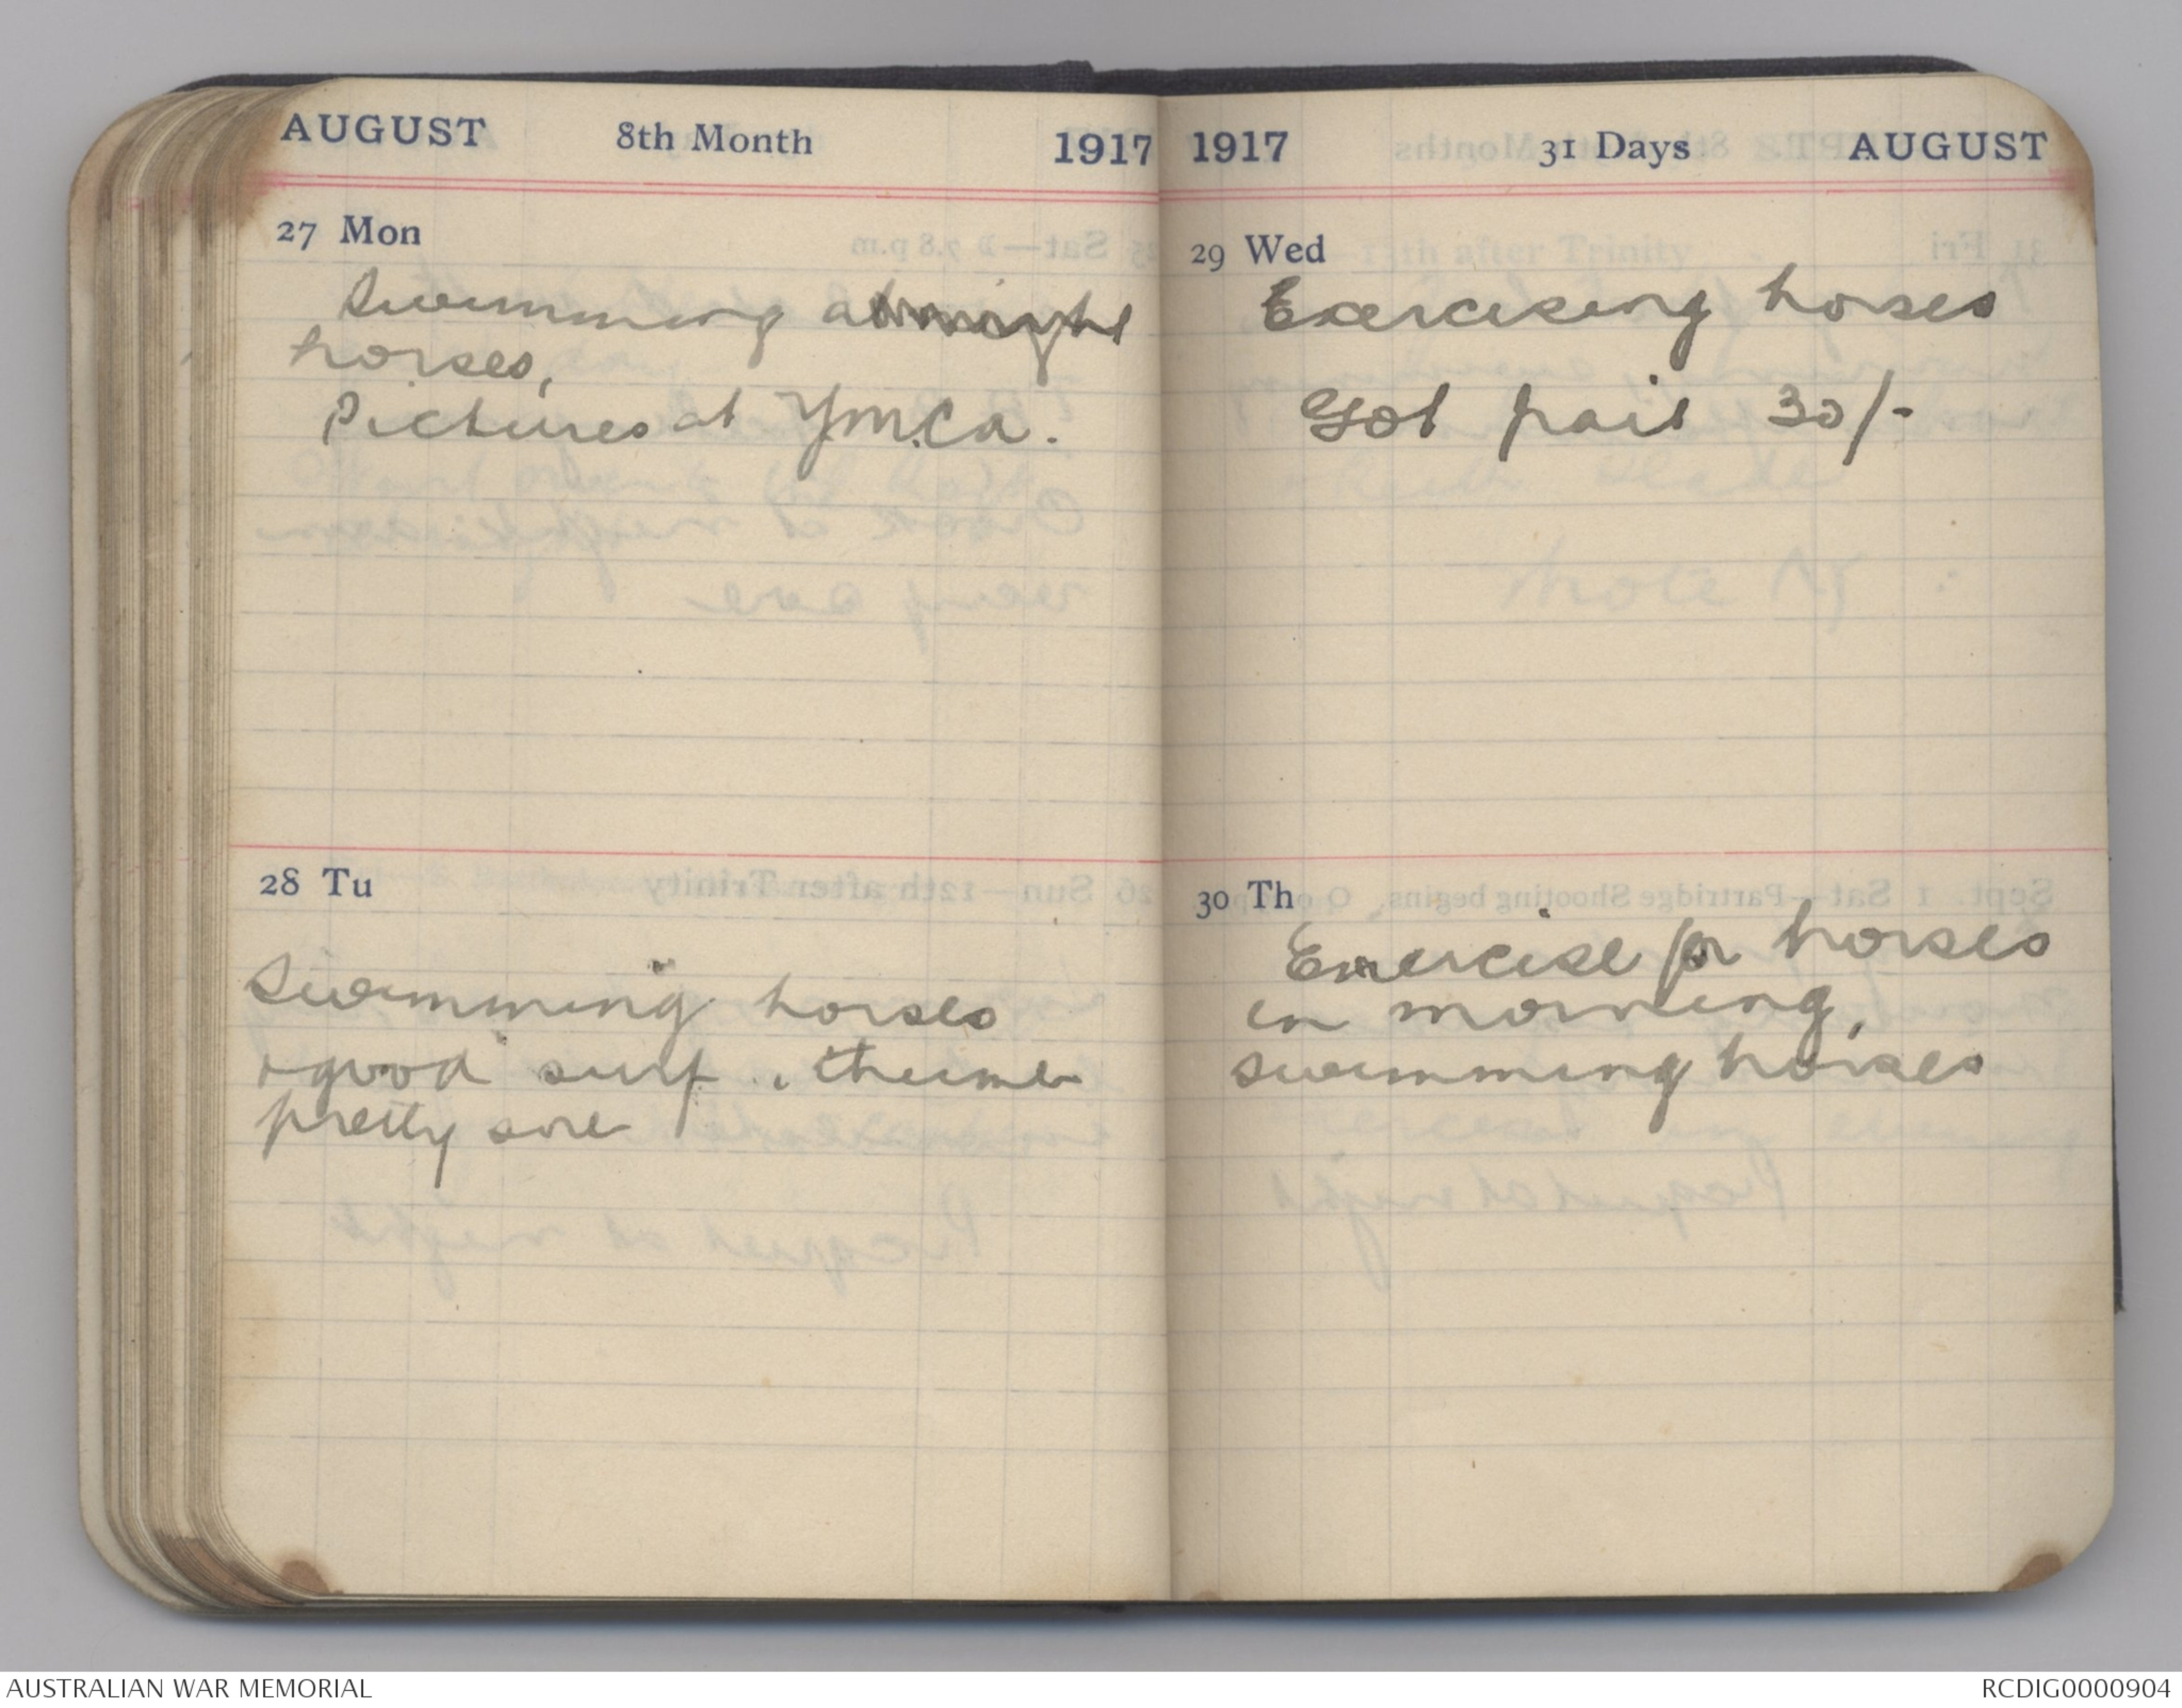 AUGUST 8th Month 1917
27 Mon
Swimming
horses,
Pictures at YMCA.
28 Tu
Swimming horses
+ good surf. thumb
pretty sore
1917 31 Days AUGUST
29 Wed
Exercising horses
Got paid 30/-
30 Th
Exercise for horses
in morning,
swimming horses
AUSTRALIAN WAR MEMORIAL
RCDIG0000904